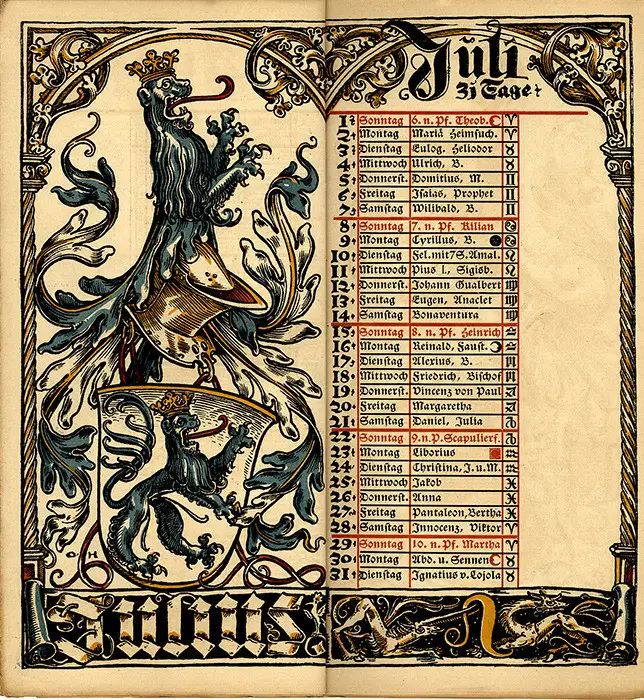 Juli
31 Tage
1 Sonntag 6. n. Pf. Theob.
2 Montag Mariä Heimsuch.
3 Dienstag Eulog. Heliodor
4 Mittwoch Ulrich, B.
5 Donnerst. Domitius, M.
6 Freitag Isaias, Prophet
7 Samstag Wilibald, B.
8 Sonntag 7. n. Pf. Kilian
9 Montag Cyrillus, B.
10 Dienstag Fel. mit 7 S. Amal.
11 Mittwoch Pius I., Sigisb.
12 Donnerst. Johann Gualbert
13 Freitag Eugen, Anaclet
14 Samstag Bonaventura
15 Sonntag 8. n. Pf. Heinrich
16 Montag Reinald, Faust.
17 Dienstag Alexius, B.
18 Mittwoch Friedrich, Bischof
19 Donnerst. Vincenz von Paul
20 Freitag Margaretha
21 Samstag Daniel, Julia
22 Sonntag 9. n. P. Scapulierf.
23 Montag Liborius
24 Dienstag Christina, J. u. M.
25 Mittwoch Jakob
26 Donnerst. Anna
27 Freitag Pantaleon, Bertha
28 Samstag Innocenz, Viktor
29 Sonntag 10. n. Pf. Martha
30 Montag Abd. u. Sennen
31 Dienstag Ignatius v. Loyola
O H
Julius